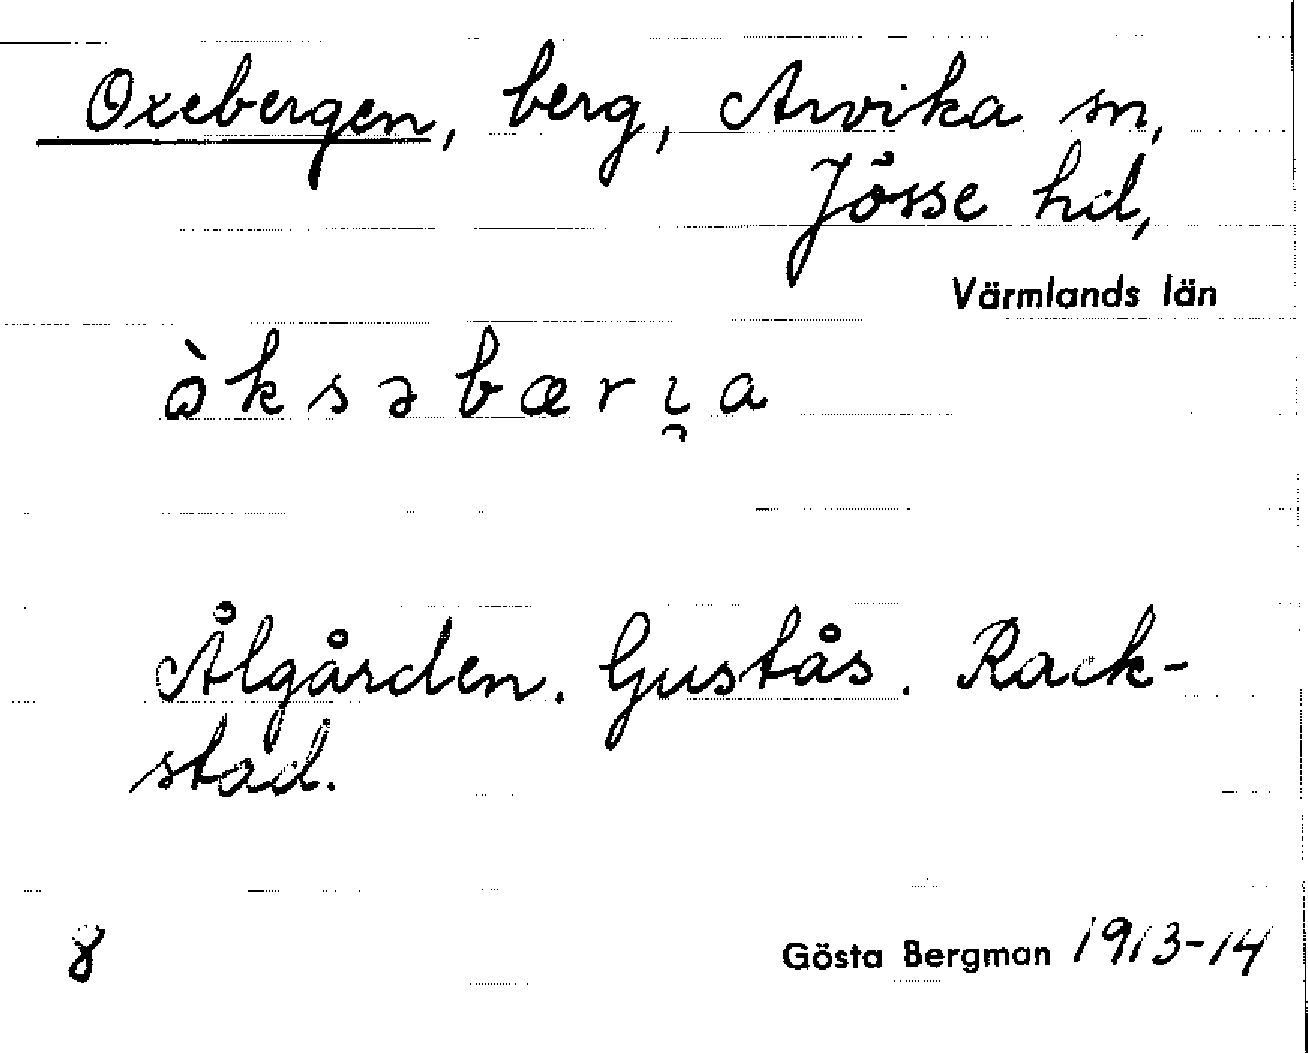 Oxebergen, berg, Arvika sn,
Jösse hd,
Värmlands län
òksəbærı̯a
Ålgården. Gustås. Rack-
stad.
8
Gösta Bergman 1913-14